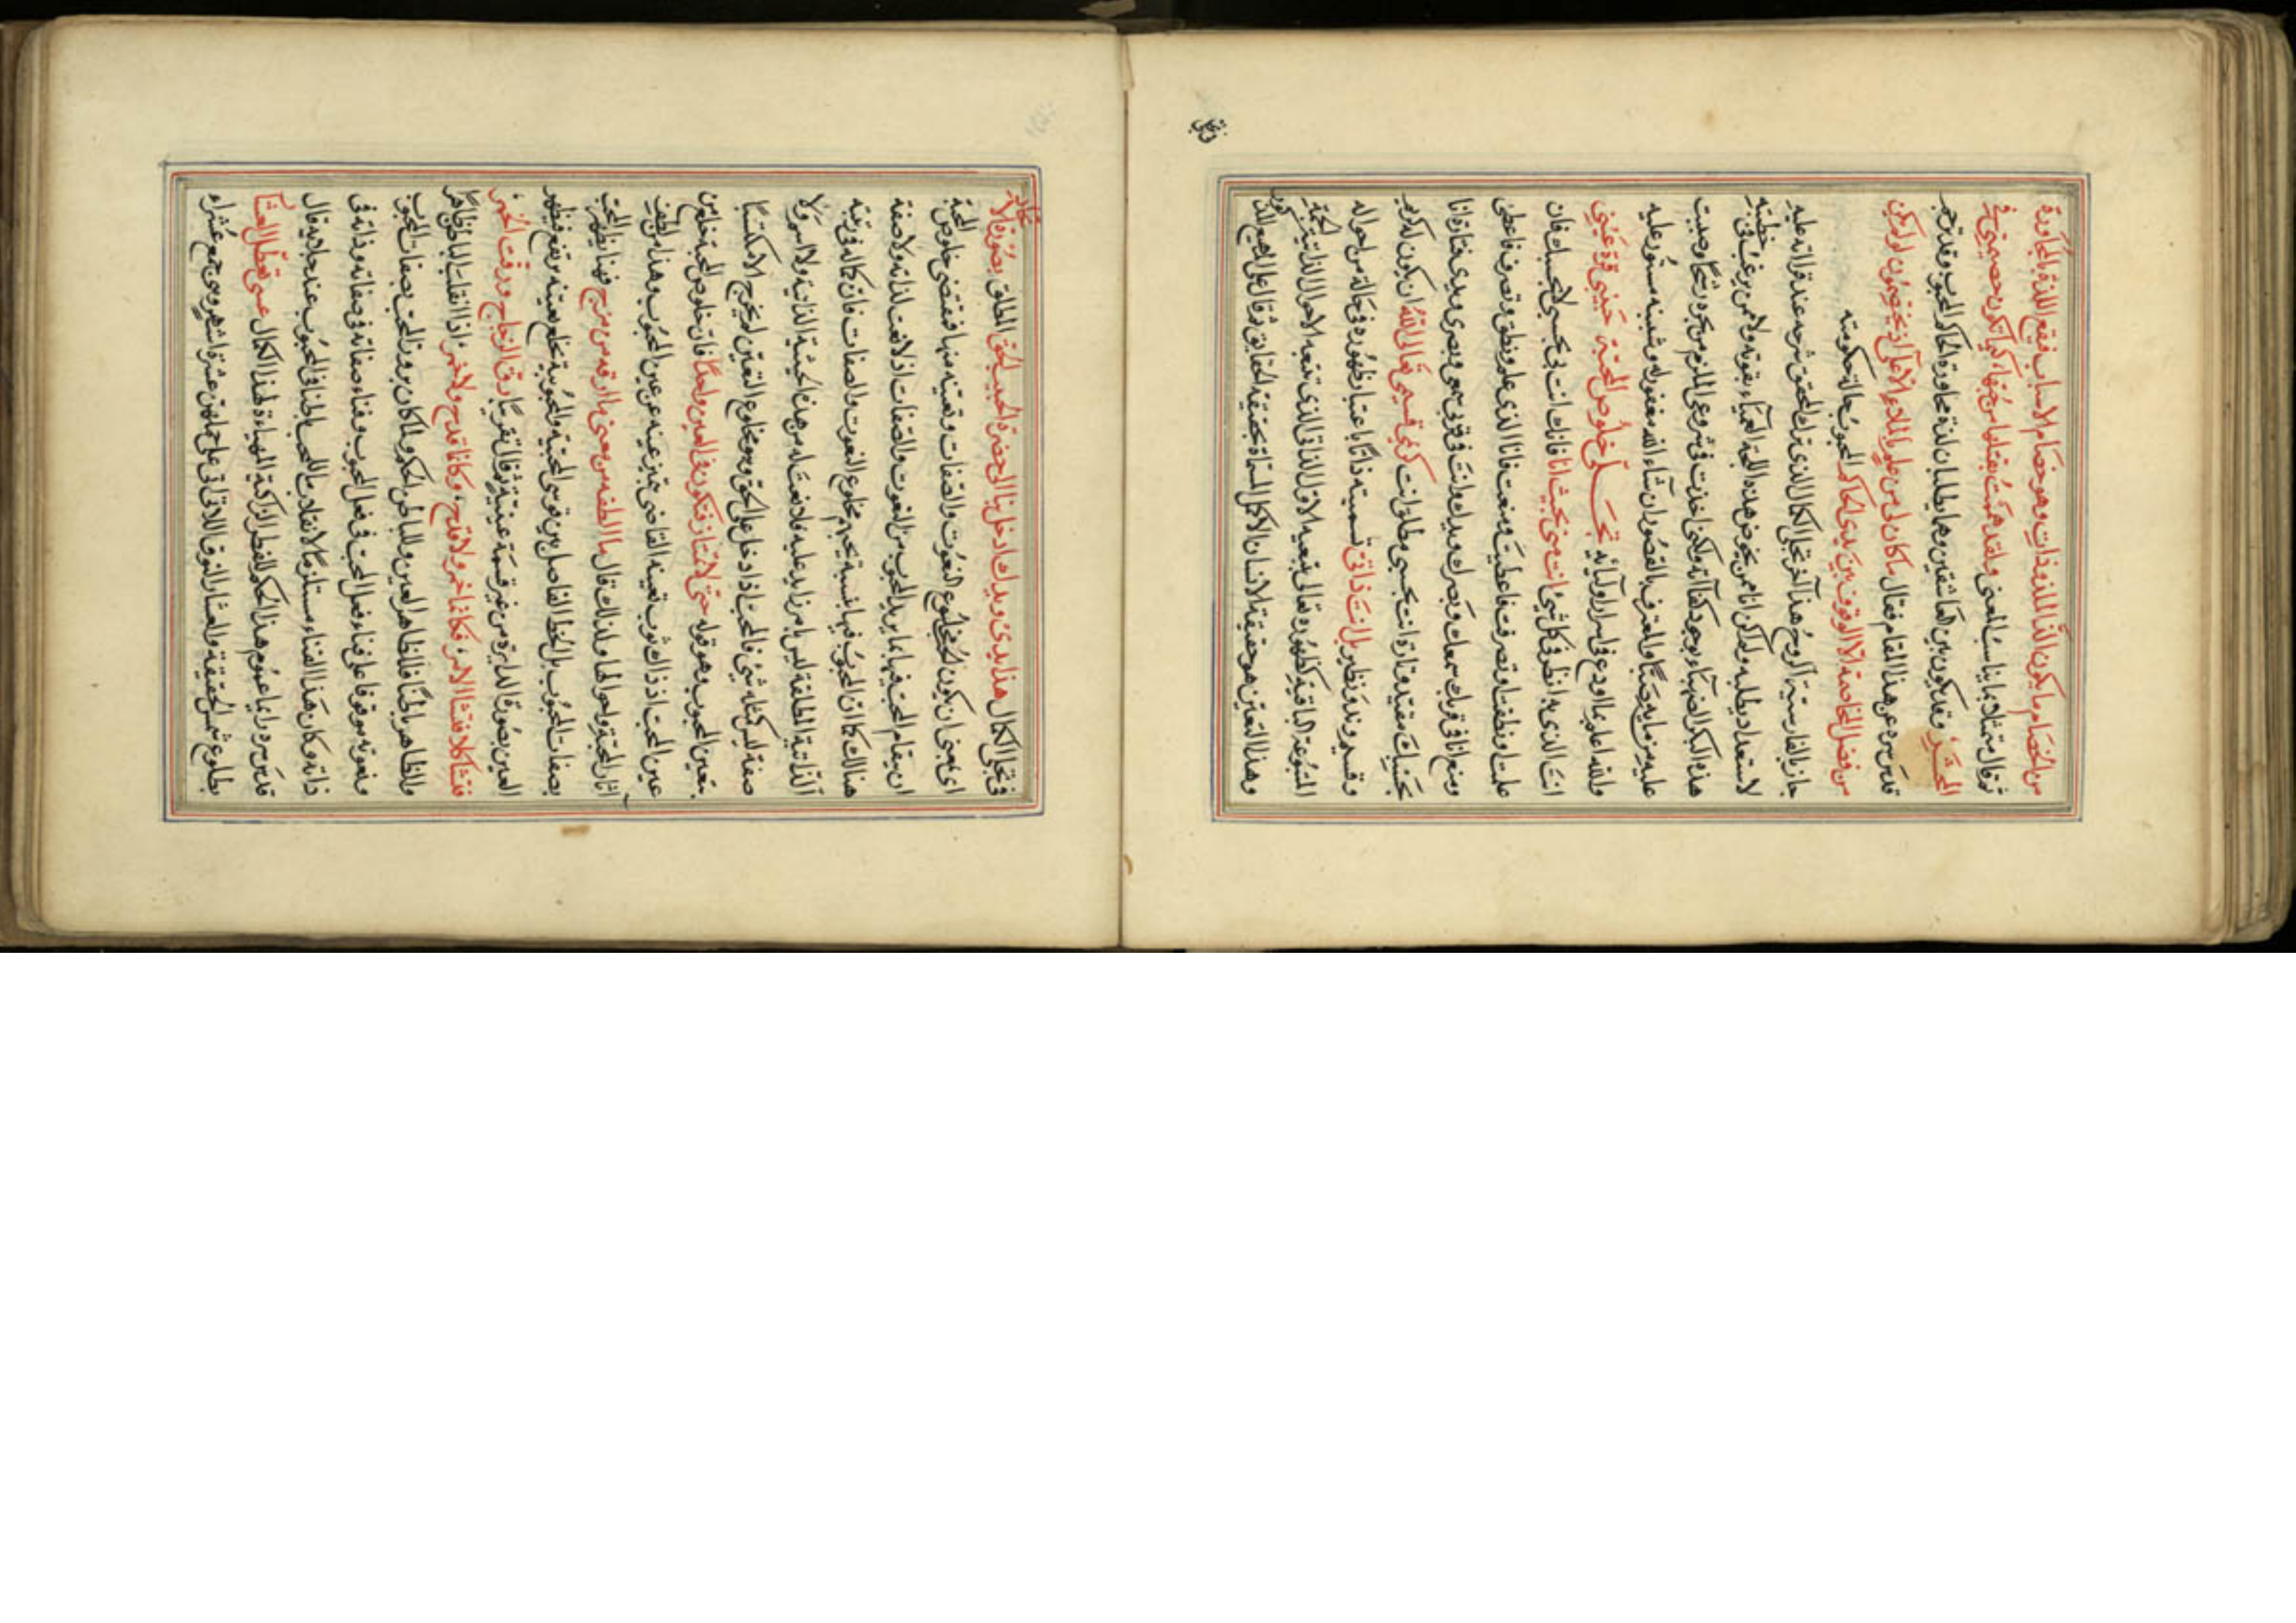 من الخصام ما يكون الذّ الملذوذات وهو خصام الاحباب فيقع اللذة بالمحاورة
ثم قال متمثلا بما يناسب المعنى ولقد هممت بقتلها من حبها كيما تكون خصيمتي في
المحشر وقد يكون بين العاشقين وهما يطلبان لذة محاورة الحاكم المحبوب وقد ترجم
قدس سره عن هذا المقام فقال ما كان لي من علم بالملاء الاعلى اذ يختصمون ولم يكن
من فضل المخاصمة الا الوقوف بين يدي الحاكم المحبوب
هذا آخر تجلي الكمال الذي ترك المحقق شرحه عند قراءته عليه
لاستعداد يطلبه ولم اكن انا ممن يخوض هذه اللجة العمياء بقوته ولا ممن يرغب في خطبته
هذه البكر الصهباء بوجود كفاءته ولكني اخذت في شروعي الملزم من بحره رشحا وصببت
عليه من مايه صبا والمعترف بالقصور ان شاء الله مغفور له وشينه مستور عليه
والله اعلم بما اودع في اسرار اوليائه تجلي خلوص المحبة حبيبي قرة عيني
انت الذي به انظر في كل شيء انت مني بحيث انا فانك انت بي بحسبي لا بحسبك فان
علمت او نطقت او تصرفت فاعطيت ومنعت فانا الذي علم ونطق وتصرف فاعطى
ومنع انا في قربك سمعك وبصرك ويدك وانت في قربي سمعي وبصري ويدي فتارة انا
بحسبك مقيد وتارة انت بحسبي مطلق انت قسيمي تعالى الله ان يكون له
وقسيم وند ونظير بل انت ذاتي تسمية ذاتا باعتبار ظهوره في حالة من احواله
المتبوعة الباقية كظهوره تعالى الاول الذاتي الذي تتبعه الاحوال الذاتية الجمة
وهذا التعين هو حقيقة الانسان الاكمل المسماة بحقيقة الحقايق ثم قال على المهيع
في تجلي الكمال هذا يدي ويدك ادخل بنا الى حضرة الحبيب الحق المطلق بصورة الاتحاد
اي يعني ان يكون مخلوع النعوت والصفات منها فيقتضي خلوص المحبة
ان يقام المحب فيما يريد المحبوب من النعوت والصفات اذ لا نعت لذاته ولا صفة
هنالك كما ان المحبوب فيها بنسبة يحبهم مخلوع النعوت والصفات فان كماله في رتبة
الذاتية المطلقة ليس بامر زايد عليه فلا نعت له من هذه الحيثية الذاتية ولا اسم ولا
صفة ليس كمثله شيء فالمحب اذا دخل على الحق وهو مخلوع التعين لم يخرج الا مكتسيا
بتعين المحبوب وهو قوله حتى لا نمتاز فنكون في العين واحدا فان خلوص المحبة خلع من
عين المحب اذ ذاك ثوب تعينه القاضي بتميز عينه عن عين المحبوب وهذا من الطف
اثار المحبة واحوالها ولذلك قال ما الطفه من معنى ما ارقه من مزج فهنا يظهر المحب
بصفات المحبوب بل الخط الفاصل بين قوسي المحبية والمحبوبية بخلع تعينه يرتفع فيظهر
العين بصورة الدايرة من غير قسمة عينية ثم قال تقريبا رق الزجاج ورقت الخمر
فتشاكلا فتشابه الامر فكانما خمر ولا قدح وكانما قدح ولا خمر اذا انقلب الباطن ظاهرا
والظاهر باطنا فللظاهر العين وللباطن الحكم ولما كان بروز المحب بصفات المحبوب
ونعوته موقوفا على فناء فعل المحب في فعل المحبوب وفناء صفاته في صفاته وذاته في
ذاته وكان هذا الفناء مستلزما لانقلاب المحب باطنا في المحبوب عند تجاذبه قال
قدس سره داعيا عموم هذا الحكم للفطر الزكية المهياة لهذا الكمال عسى تعطل العشار
بطلوع شمس الحقيقة والعشار النوق اللاتي اتى على حملهن عشرة اشهر وهي جمع عشراء